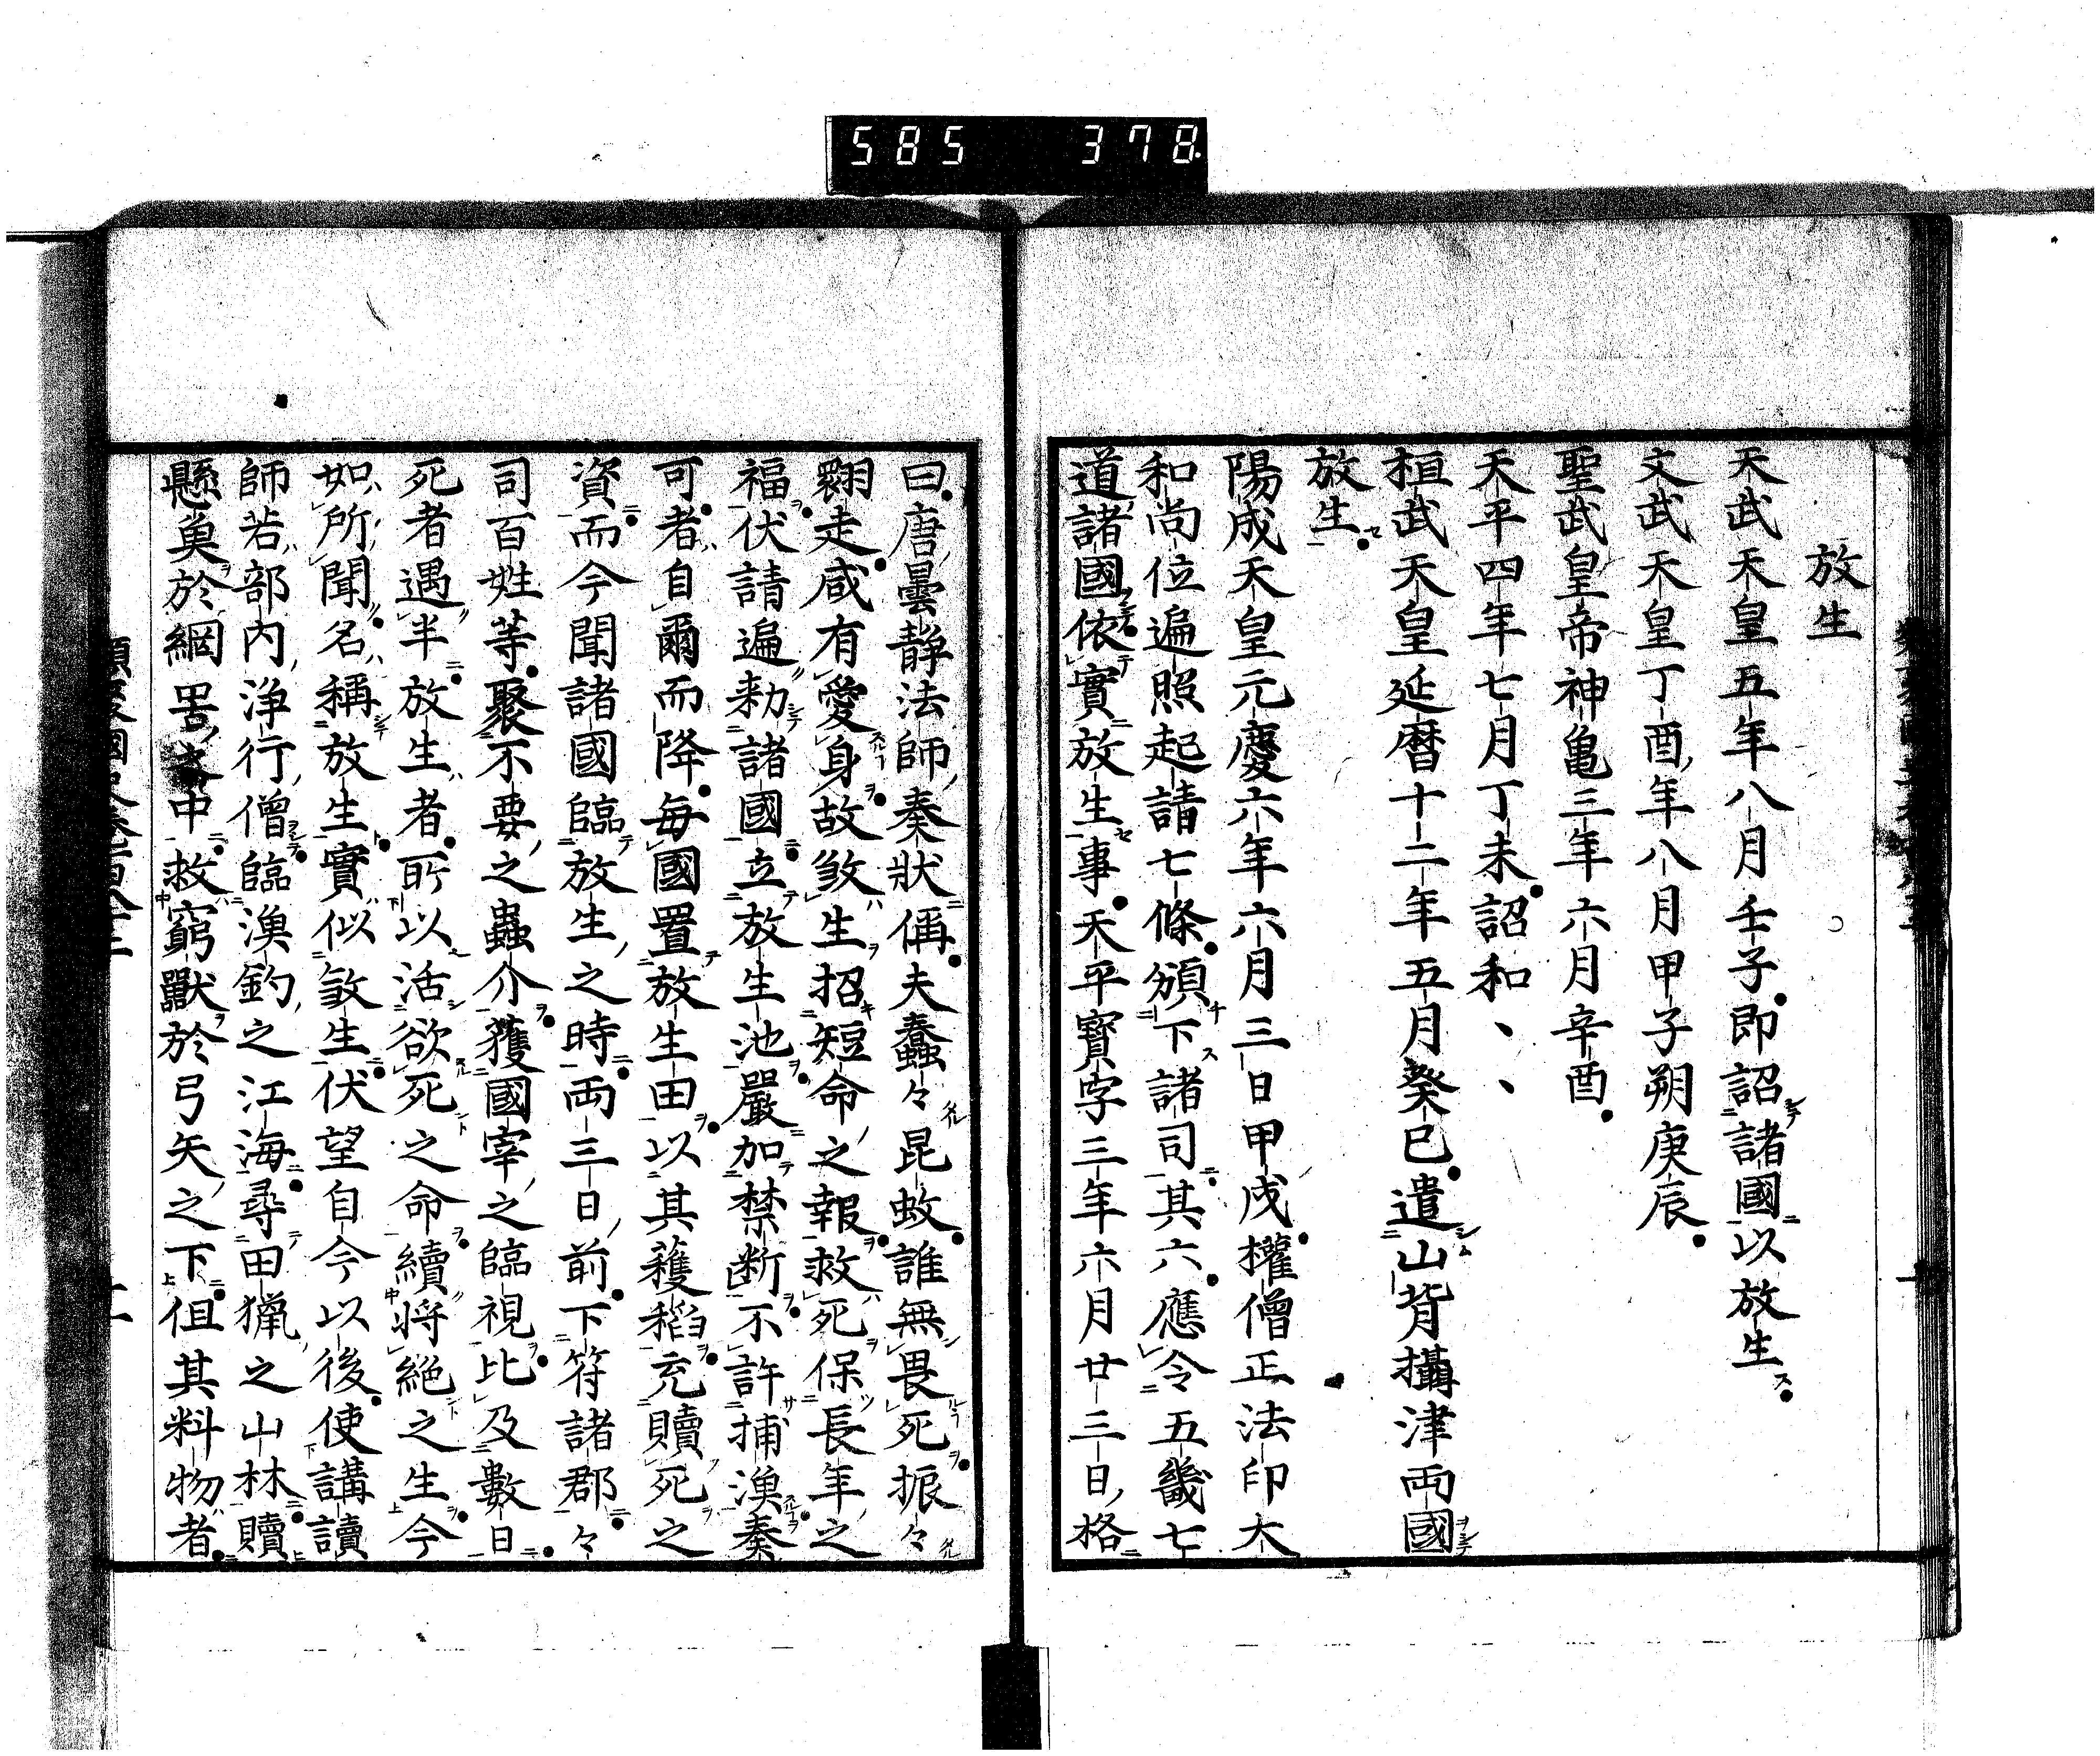 585 378
放生
天武天皇五年八月壬子即詔諸國以放生
文武天皇丁酉年八月甲子朔庚辰
聖武皇帝神亀三年六月辛酉
天平四年七月丁未詔和、、
桓武天皇延暦十二年五月癸巳遣山背攝津両國
放生
陽成天皇元慶六年六月三日甲戌權僧正法印大
和尚位遍照起請七條頒下諸司其六應令五畿七
道諸國依實放生事天平寳字三年六月廿三日格
曰唐曇静法師奏状偁夫蠢々昆蚑誰無畏死振々
翾走咸有愛身故敓生招短命之報救死保長年之
福伏請遍勑諸國立放生池嚴加禁断不許捕漁奏
可者自爾而降毎國置放生田以其穫稻充贖死之
資而今聞諸國臨放生之時両三日前下符諸郡々
司百姓等聚不要之蟲介獲國宰之臨視比及數日
死者過半放生者所以活欲死之命續将絶之生今
如所聞名稱放生實似敓生伏望自今以後使講讀
師若部内浄行僧臨漁釣之江海尋田獵之山林贖
懸奠於網罟之中救窮獸於弓矢之下但其料物者